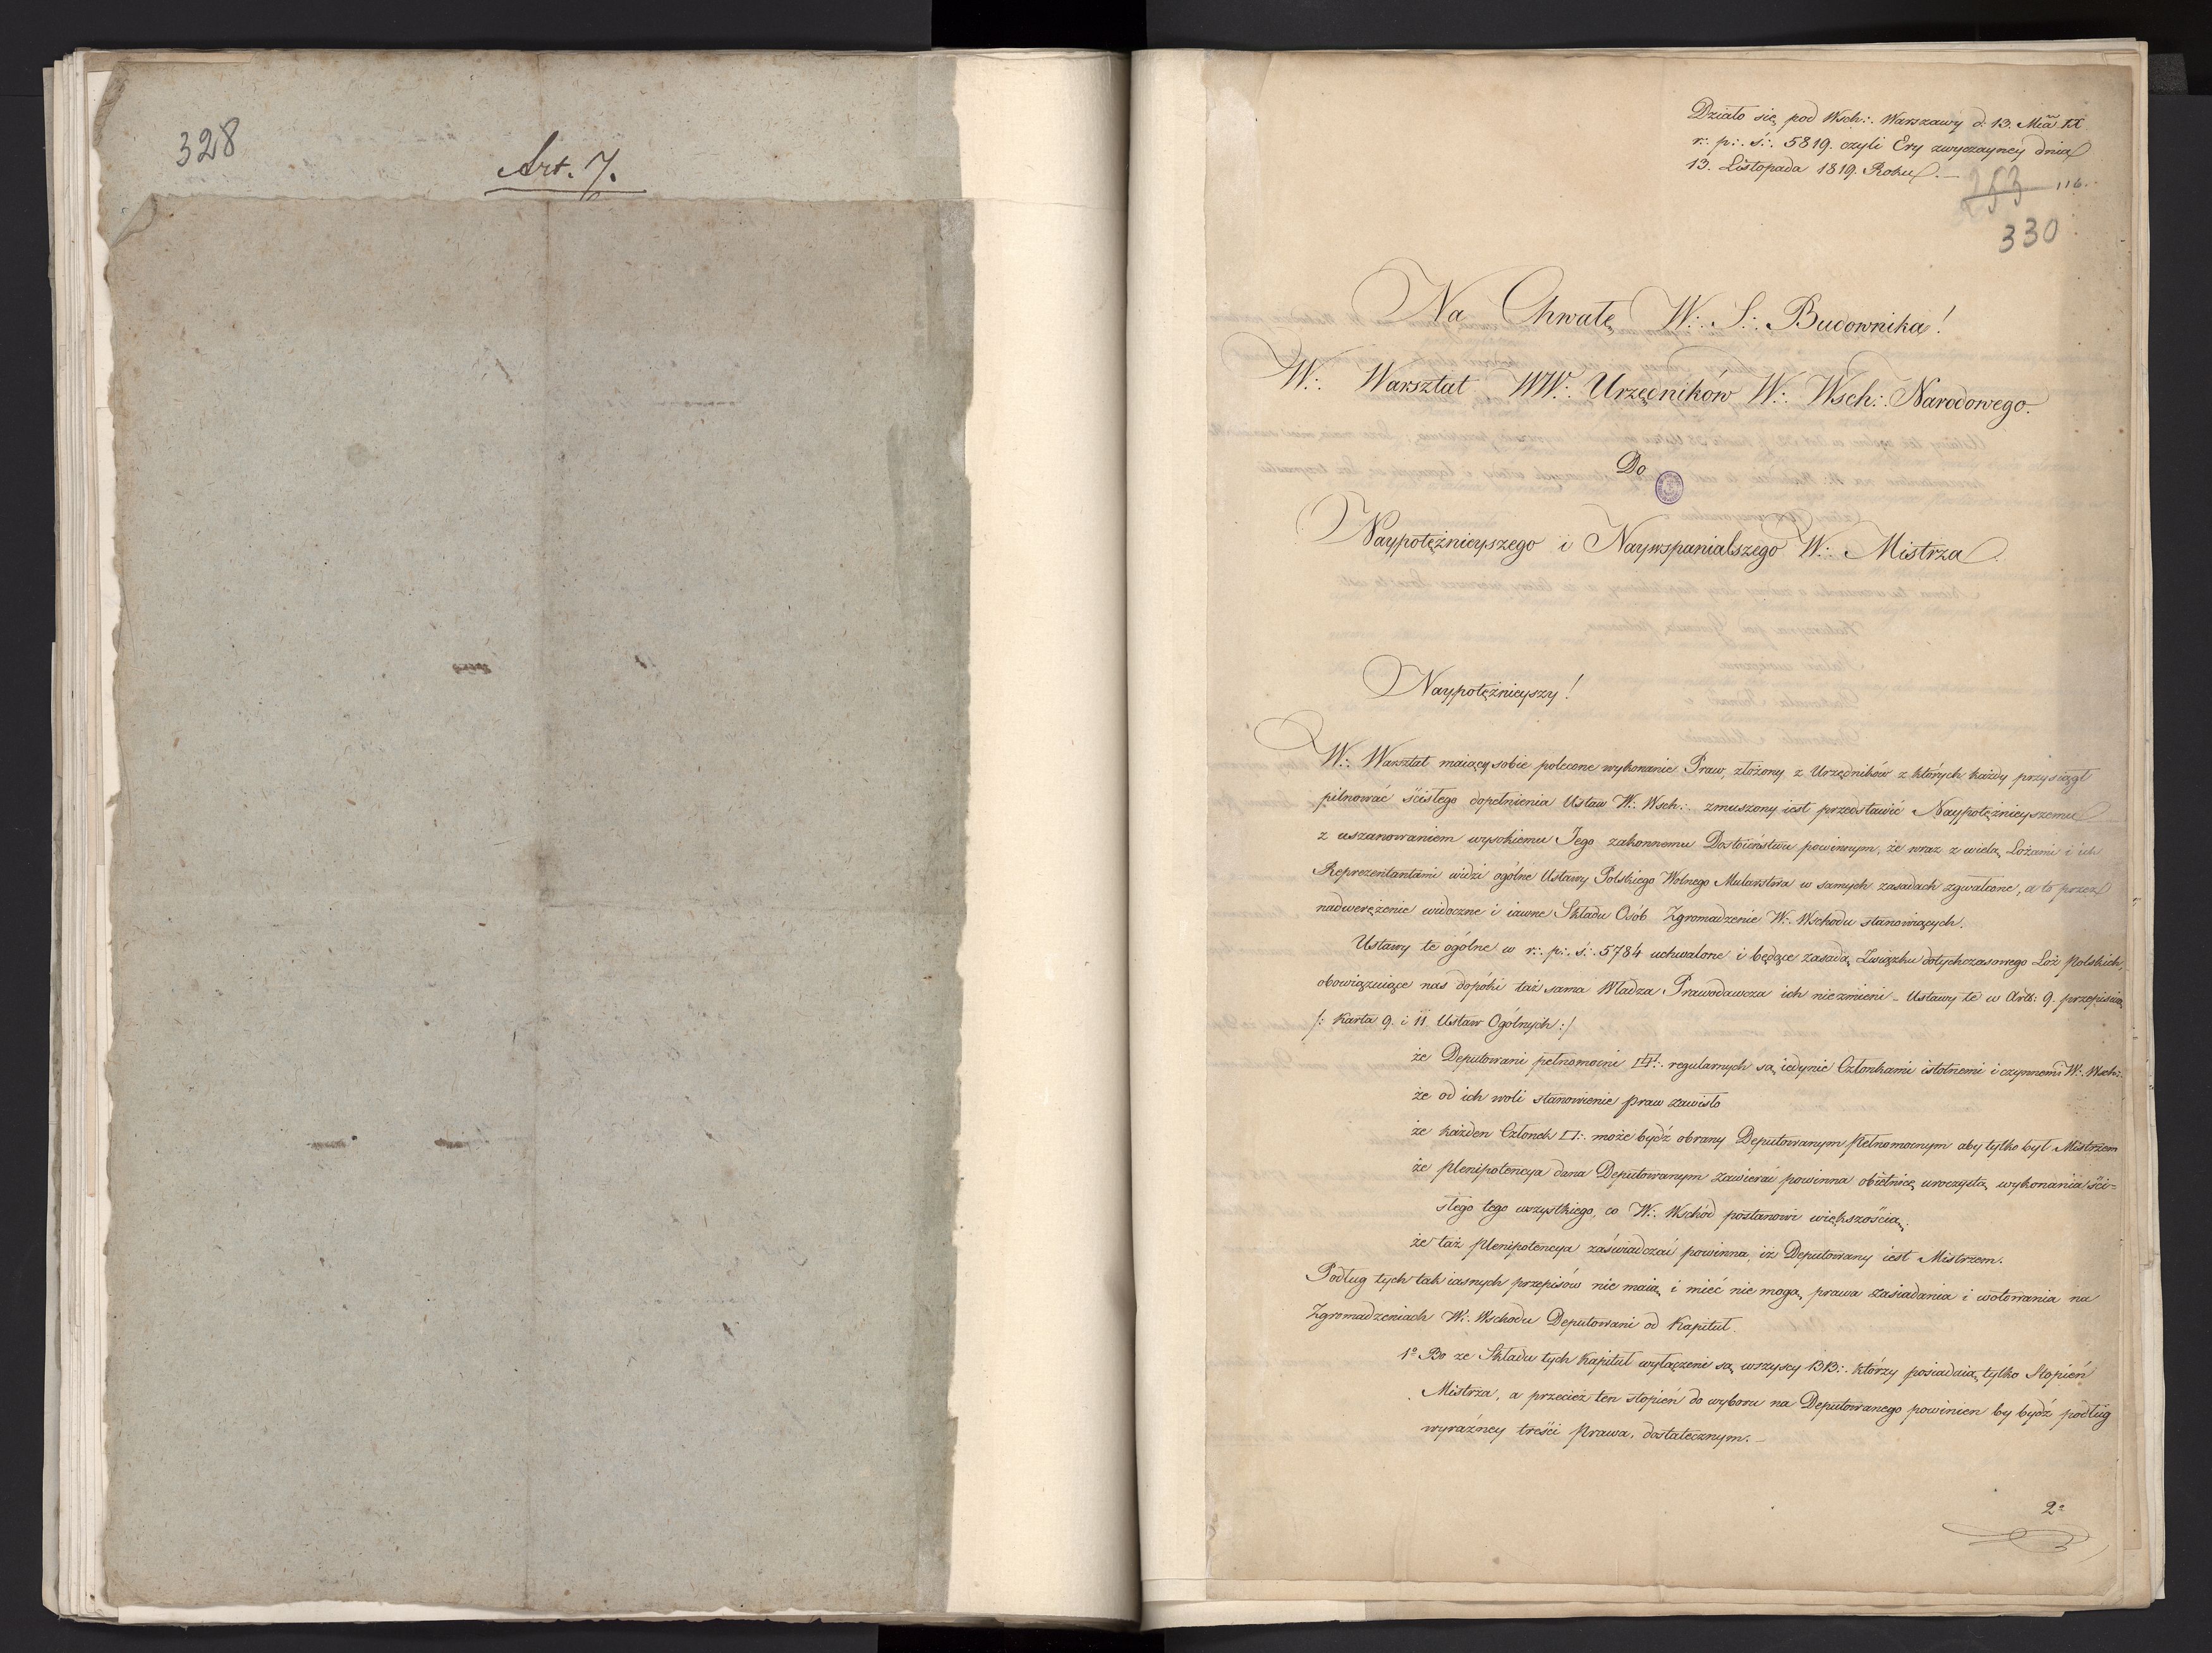 328
Art. 7.
Działo się pod Wsch:. Warszawy d. 13. Mca IX
r:. p:. ś:. 5819. czyli Ery zwyczayney dnia
13. Listopada 1819. Roku. —
253 116.
330
Na Chwałę W:. S:. Budownika!
W:. Warsztat WW:. Urzędników W:. Wsch:. Narodowego.
Do
Naypotężnieyszego i Naywspanialszego W:. Mistrza.
Naypotężnieyszy!
W:. Warsztat maiący sobie polecone wykonanie Praw, złożony z Urzędników z których każdy przysiągł
pilnować ścisłego dopełnienia Ustaw W:. Wsch:. zmuszony iest przedstawić Naypotężnieyszemu
z uszanowaniem wysokiemu Jego zakonnemu Dostoieństwu powinnym, że wraz z wielą Lożami i ich
Reprezentantami widzi ogólne Ustawy Polskiego Wolnego Mularstwa w samych zasadach zgwałcone, a to przez
nadwerężenie widoczne i iawne Składu Osób Zgromadzenie W:. Wschodu stanowiących.
Ustawy te ogólne w r:. p:. ś:. 5784 uchwalone i będące zasadą Związku dotychczasowego Lóż Polskich,
obowiązuiące nas dopóki taż sama Władza Prawodawcza ich niezmieni – Ustawy te w Artł: 9. przepisuią
/: Karta 9. i 11. Ustaw Ogólnych :/
że Deputowani pełnomocni regularnych są iedynie Członkami istotnemi i czynnemi W:. Wsch:.
że od ich woli stanowienie praw zawisło
że każden Członek □:. może bydź obrany Deputowanym Pełnomocnym aby tylko był Mistrzem
że Plenipotencya dana Deputowanym zawierać powinna obietnicę uroczystą wykonania ści=
słego tego wszystkiego, co W:. Wschód postanowi większością.
że taż Plenipotencya zaświadczać powinna, iż Deputowany iest Mistrzem.
Podług tych tak iasnych przepisów nie maią i mieć nie mogą prawa zasiadania i wotowania na
Zgromadzeniach W:. Wschodu Deputowani od Kapituł.
1º Bo ze Składu tych Kapituł wyłączeni są wszyscy BB:. którzy posiadaią tylko Stopień
Mistrza, a przecież ten stopień do wyboru na Deputowanego powinien by bydź podług
wyraźney treści Prawa, dostatecznym. –
2º